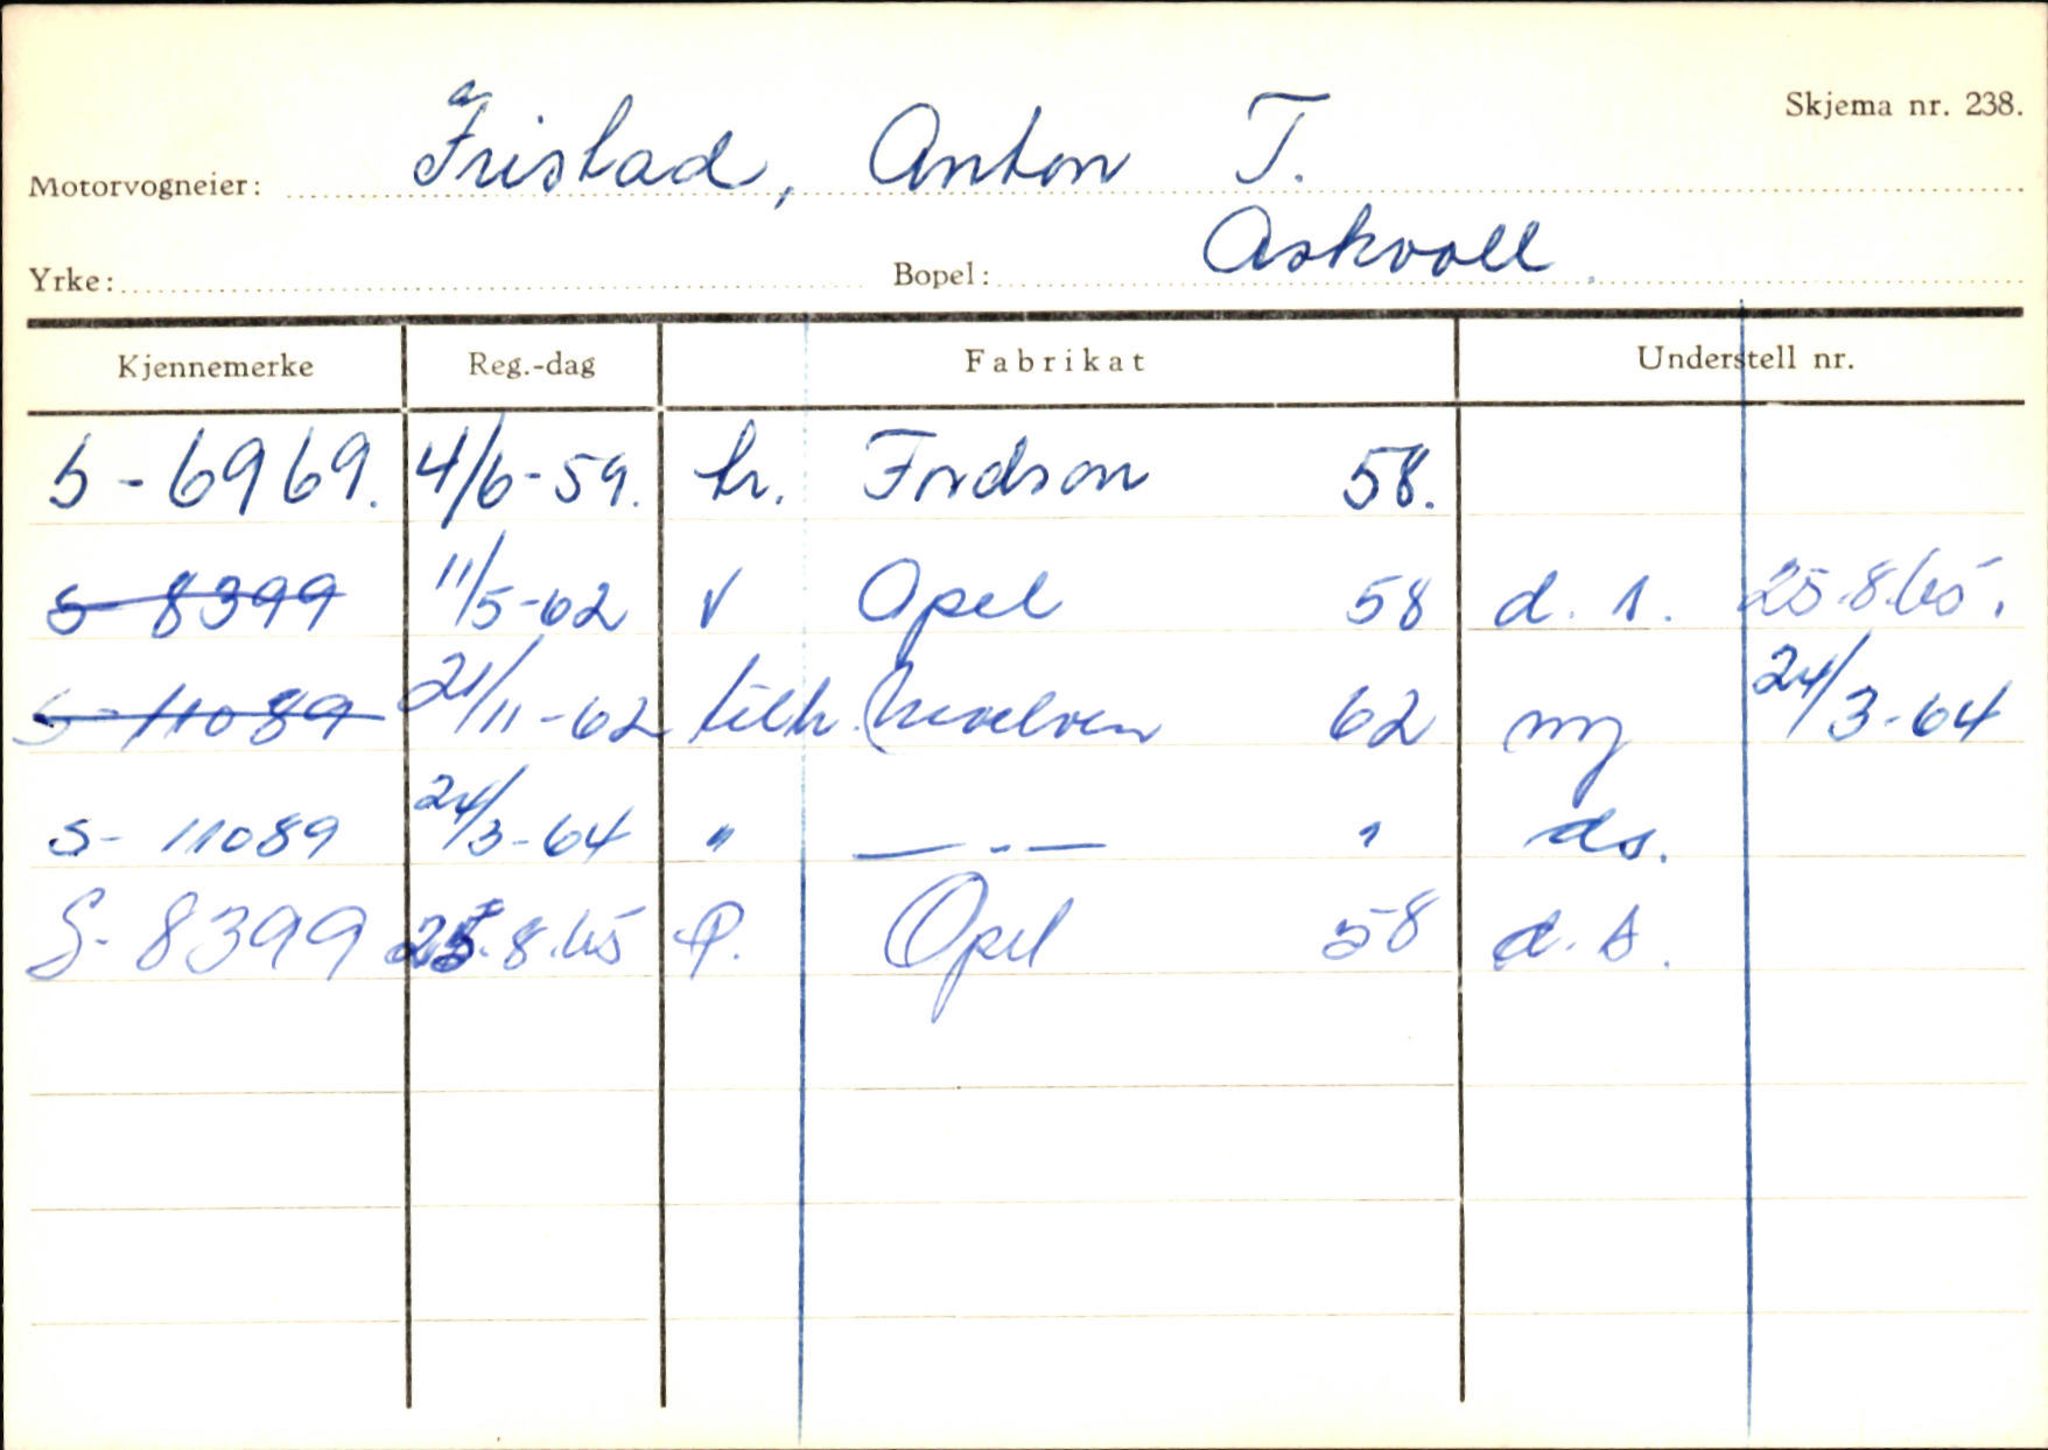 Skjema nr. 238.
Motorvogneier: Fristad, Anton T.
Yrke: Bopel: Askvoll
Kjennemerke Reg.-dag Fabrikat Understell nr.
S-6969. 4/6-59. tr. Fordson 58.
S-8399 11/5-62 v Opel 58 d.s. 25.8.65.
S-11089 21/11-62 tilh. 62 ny 24/3-64
S-11089 24/3-64 " —"— " ds.
S-8399 25.8.65 P. Opel 58 d.s.